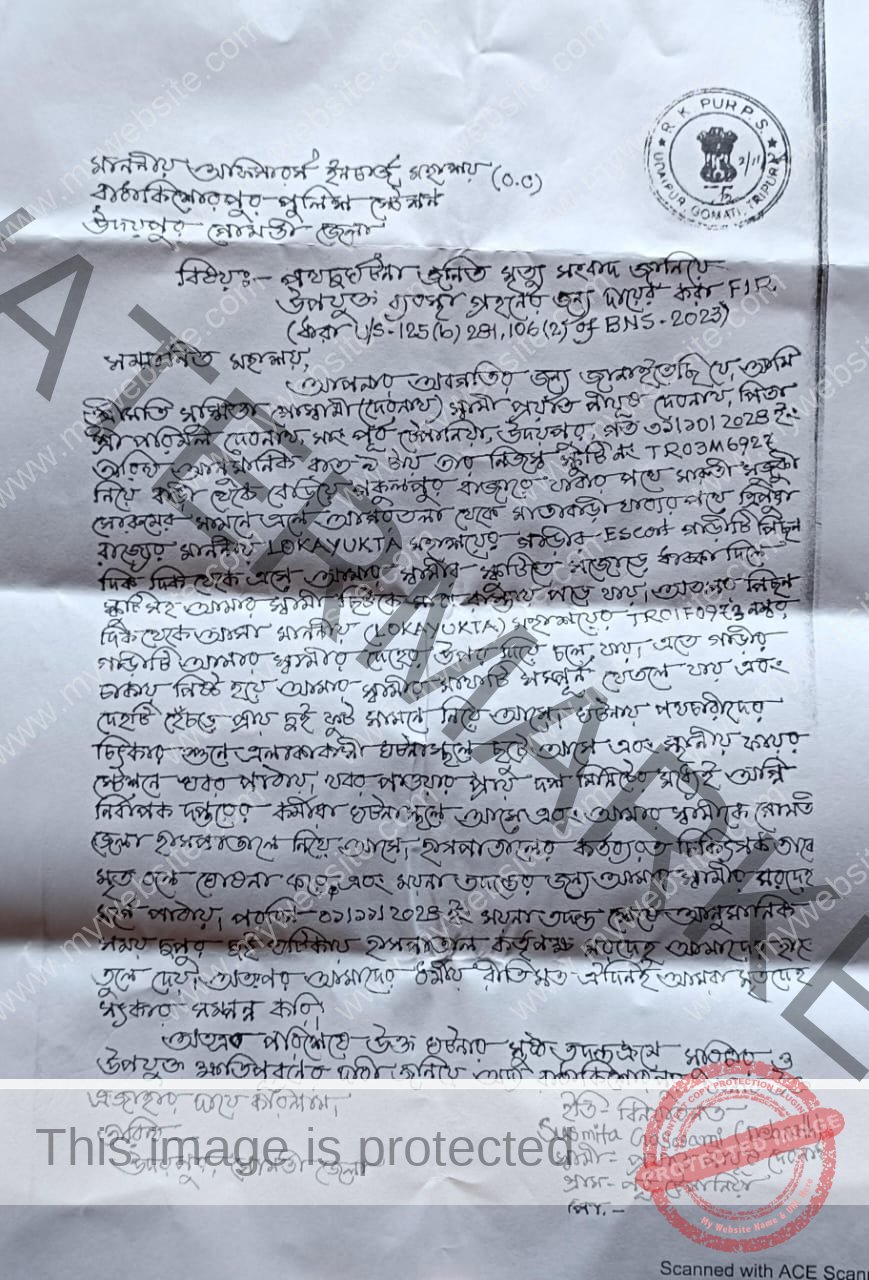 R. K. PUR P.S.
UDAIPUR GOMATI, TRIPURA
মাননীয় অফিসার ইনচার্জ মহাশয় (O.C)
রাধাকিশোরপুর পুলিশ স্টেশন
উদয়পুর গোমতী জেলা
বিষয়ঃ- পথদুর্ঘটনা জনিত মৃত্যু সংবাদ জানিয়ে
উপযুক্ত ব্যবস্থা গ্রহনের জন্য দায়ের করা FIR.
(ধারা U/S-125(b) 281, 106(2) of BNS-2023)
সম্মানিত মহাশয়,
আপনার অবগতির জন্য জানাইতেছি যে, আমি
শ্রীমতি সুস্মিতা গোস্বামী (দেবনাথ) স্বামী প্রয়াত পীযূষ দেবনাথ, পিতা
শ্রী পরিমল দেবনাথ, সাং পূর্ব, উদয়পুর, গত ইং
আনুমানিক রাত ৯ টায় তার নিজস্ব স্কুটি নং TR03M6927
নিয়ে বাড়ী থেকে বেড়িয়ে বাজারে যাবার পথে মারুতী সুজুকী
শোরুমের সামনে এলে আগরতলা থেকে মাতাবাড়ী যাবার পথে ত্রিপুরা
রাজ্যের মাননীয় LOKAYUKTA মহাশয়ের গাড়ীর Escort গাড়ীটি পিছন
দিক থেকে এসে আমার স্বামীর স্কুটিতে সজোড়ে ধাক্কা দিলে
স্কুটিসহ আমার স্বামী ছিটকে রাস্তায় পড়ে যায়, পিছন
দিক থেকে আসা মাননীয় (LOKAYUKTA) মহাশয়ের TR01F0973 নম্বর
গাড়ীটি আমার স্বামীর দেহের উপর দিয়ে চলে যায়, এতে গাড়ীর
চাকায় পিষ্ট হয়ে আমার স্বামীর মাথাটি সম্পূর্ণ থেতলে যায় এবং
দেহটি হেঁচড়ে প্রায় দুই ফুট সামনে নিয়ে আসে। ঘটনায় পথচারীদের
চিৎকার শুনে এলাকাবাসী ঘটনাস্থলে ছুটে আসে এবং স্থানীয় ফায়ার
স্টেশনে খবর পাঠায়, খবর পাওয়ার প্রায় দশ মিনিটের মধ্যেই অগ্নি
নির্বাপক দপ্তরের কর্মীরা ঘটনাস্থলে আসে এবং আমার স্বামীকে গোমতী
জেলা হাসপাতালে নিয়ে আসে, হাসপাতালের কর্তব্যরত চিকিৎসক তাকে
মৃত বলে ঘোষনা করে, এবং ময়না তদন্তের জন্য আমার স্বামীর মরদেহ
মর্গে পাঠায়, ইং ময়না তদন্ত শেষে আনুমানিক
সময় দুপুর দুই ঘটিকায় হাসপাতাল কর্তৃপক্ষ মরদেহ আমাদের হাতে
তুলে দেয়, অতঃপর আমাদের ধর্মীয় রীতিমত ঐদিনই আমরা মৃতদেহ
সৎকার সম্পন্ন করি,
অতএব পরিশেষে উক্ত ঘটনার সুষ্ঠ তদন্তক্রমে সুবিচার ও
উপযুক্ত ক্ষতিপূরনের দাবী জানিয়ে
এজাহার দায়ের করিলাম,
ইতি- বিনয়াবনত
Susmita Goswami (Debnath)
উদয়পুর, গোমতী জেলা
গ্রাম- পূর্ব
পো.-
WATERMARKED
www.mywebsite.com
This image is protected
WP CONTENT COPY PROTECTION PLUGIN
PROTECTED IMAGE
My Website Name & Url Here
Scanned with ACE Scan